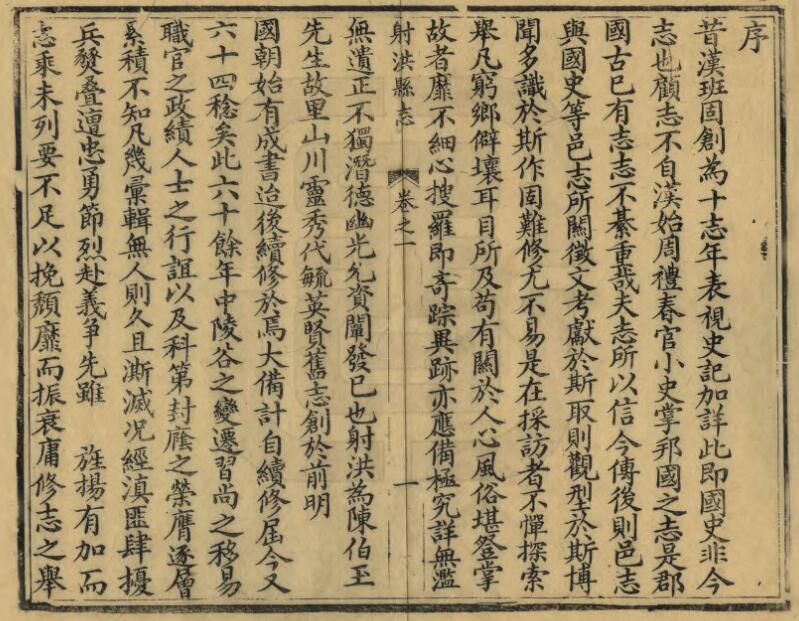 序
昔漢班固創為十志年表視史記加詳此即國史非今
志也顧志不自漢始周禮春官小史掌邦國之志是郡
國古已有志志不綦重哉夫志所以信今傳後則邑志
與國史等邑志所關徵文考獻於斯取則觀型於斯博
聞多識於斯作固難修尤不易是在採訪者不憚探索
舉凡窮鄉僻壤耳目所及苟有關於人心風俗堪登掌
故者靡不細心搜羅即奇踪異跡亦應備極究詳無濫
射洪縣志 卷之一 一
無遺正不獨潛德幽光允資闡發已也射洪為陳伯玉
先生故里山川靈秀代毓英賢舊志創於前明
國朝始有成書迨後續修於焉大備計自續修屆今又
六十四稔矣此六十餘年中陵谷之變遷習尚之移易
職官之政績人士之行誼以及科第封廕之榮膺逐層
累積不知凡幾彙輯無人則久且澌滅况經滇匪肆擾
兵燹叠遭忠勇節烈赴義爭先雖 旌揚有加而
志乘未列要不足以挽頹靡而振衰庸修志之舉